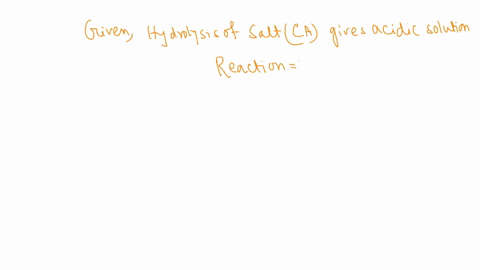 Given, Hydrolysis of Salt (CA) gives acidic solution
Reaction =